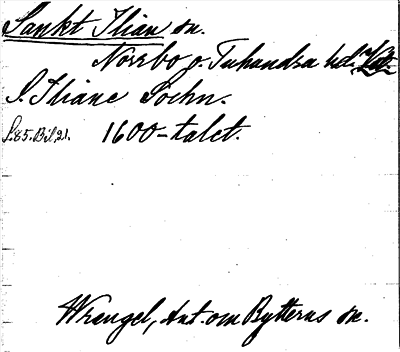 Sankt Ilian sn.
Norrbo o. Tuhundra hd.
S. Iliane Sochn.
S.85.Bil,21. 1600-talet.
Wrangel, Ant. om Rytterns sn.